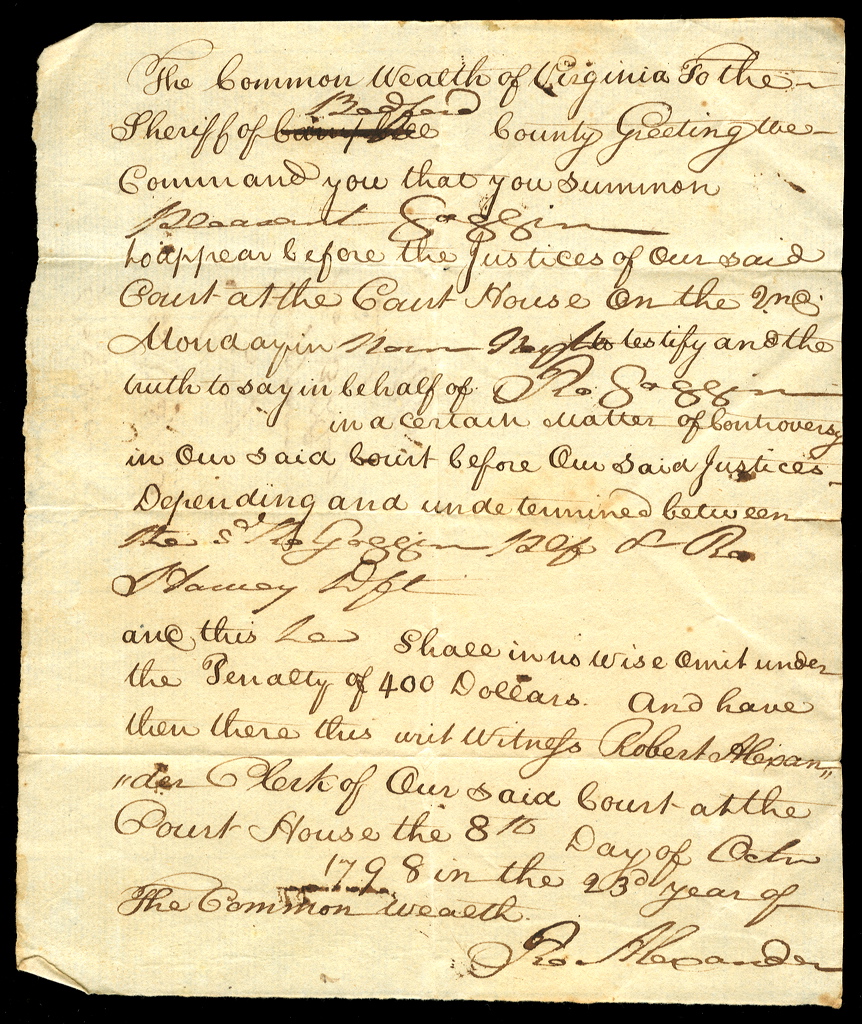 The Common Wealth of Virginia To the
Bedford
Sheriff of Campbell County Greeting We
Command you that you summon
Pleasant Goggin
to appear before the Justices of Our said
Court at the Court House On the 2nd
Monday in Next to testify and the
truth to say in behalf of Goggin
in a certain Matter of Controversy
in Our said Court before Our said Justices
Depending and undetermined between
the sd Goggin Plf &
Harvey Dft
and this he Shall in no wise Omit under
the Penalty of 400 Dollars. And have
then there this writ Witness Robert Alexan„
„der Clerk of Our said Court at the
Court House the 8th Day of Octr
1798 in the 23d year of
The Common wealth.
Alexander